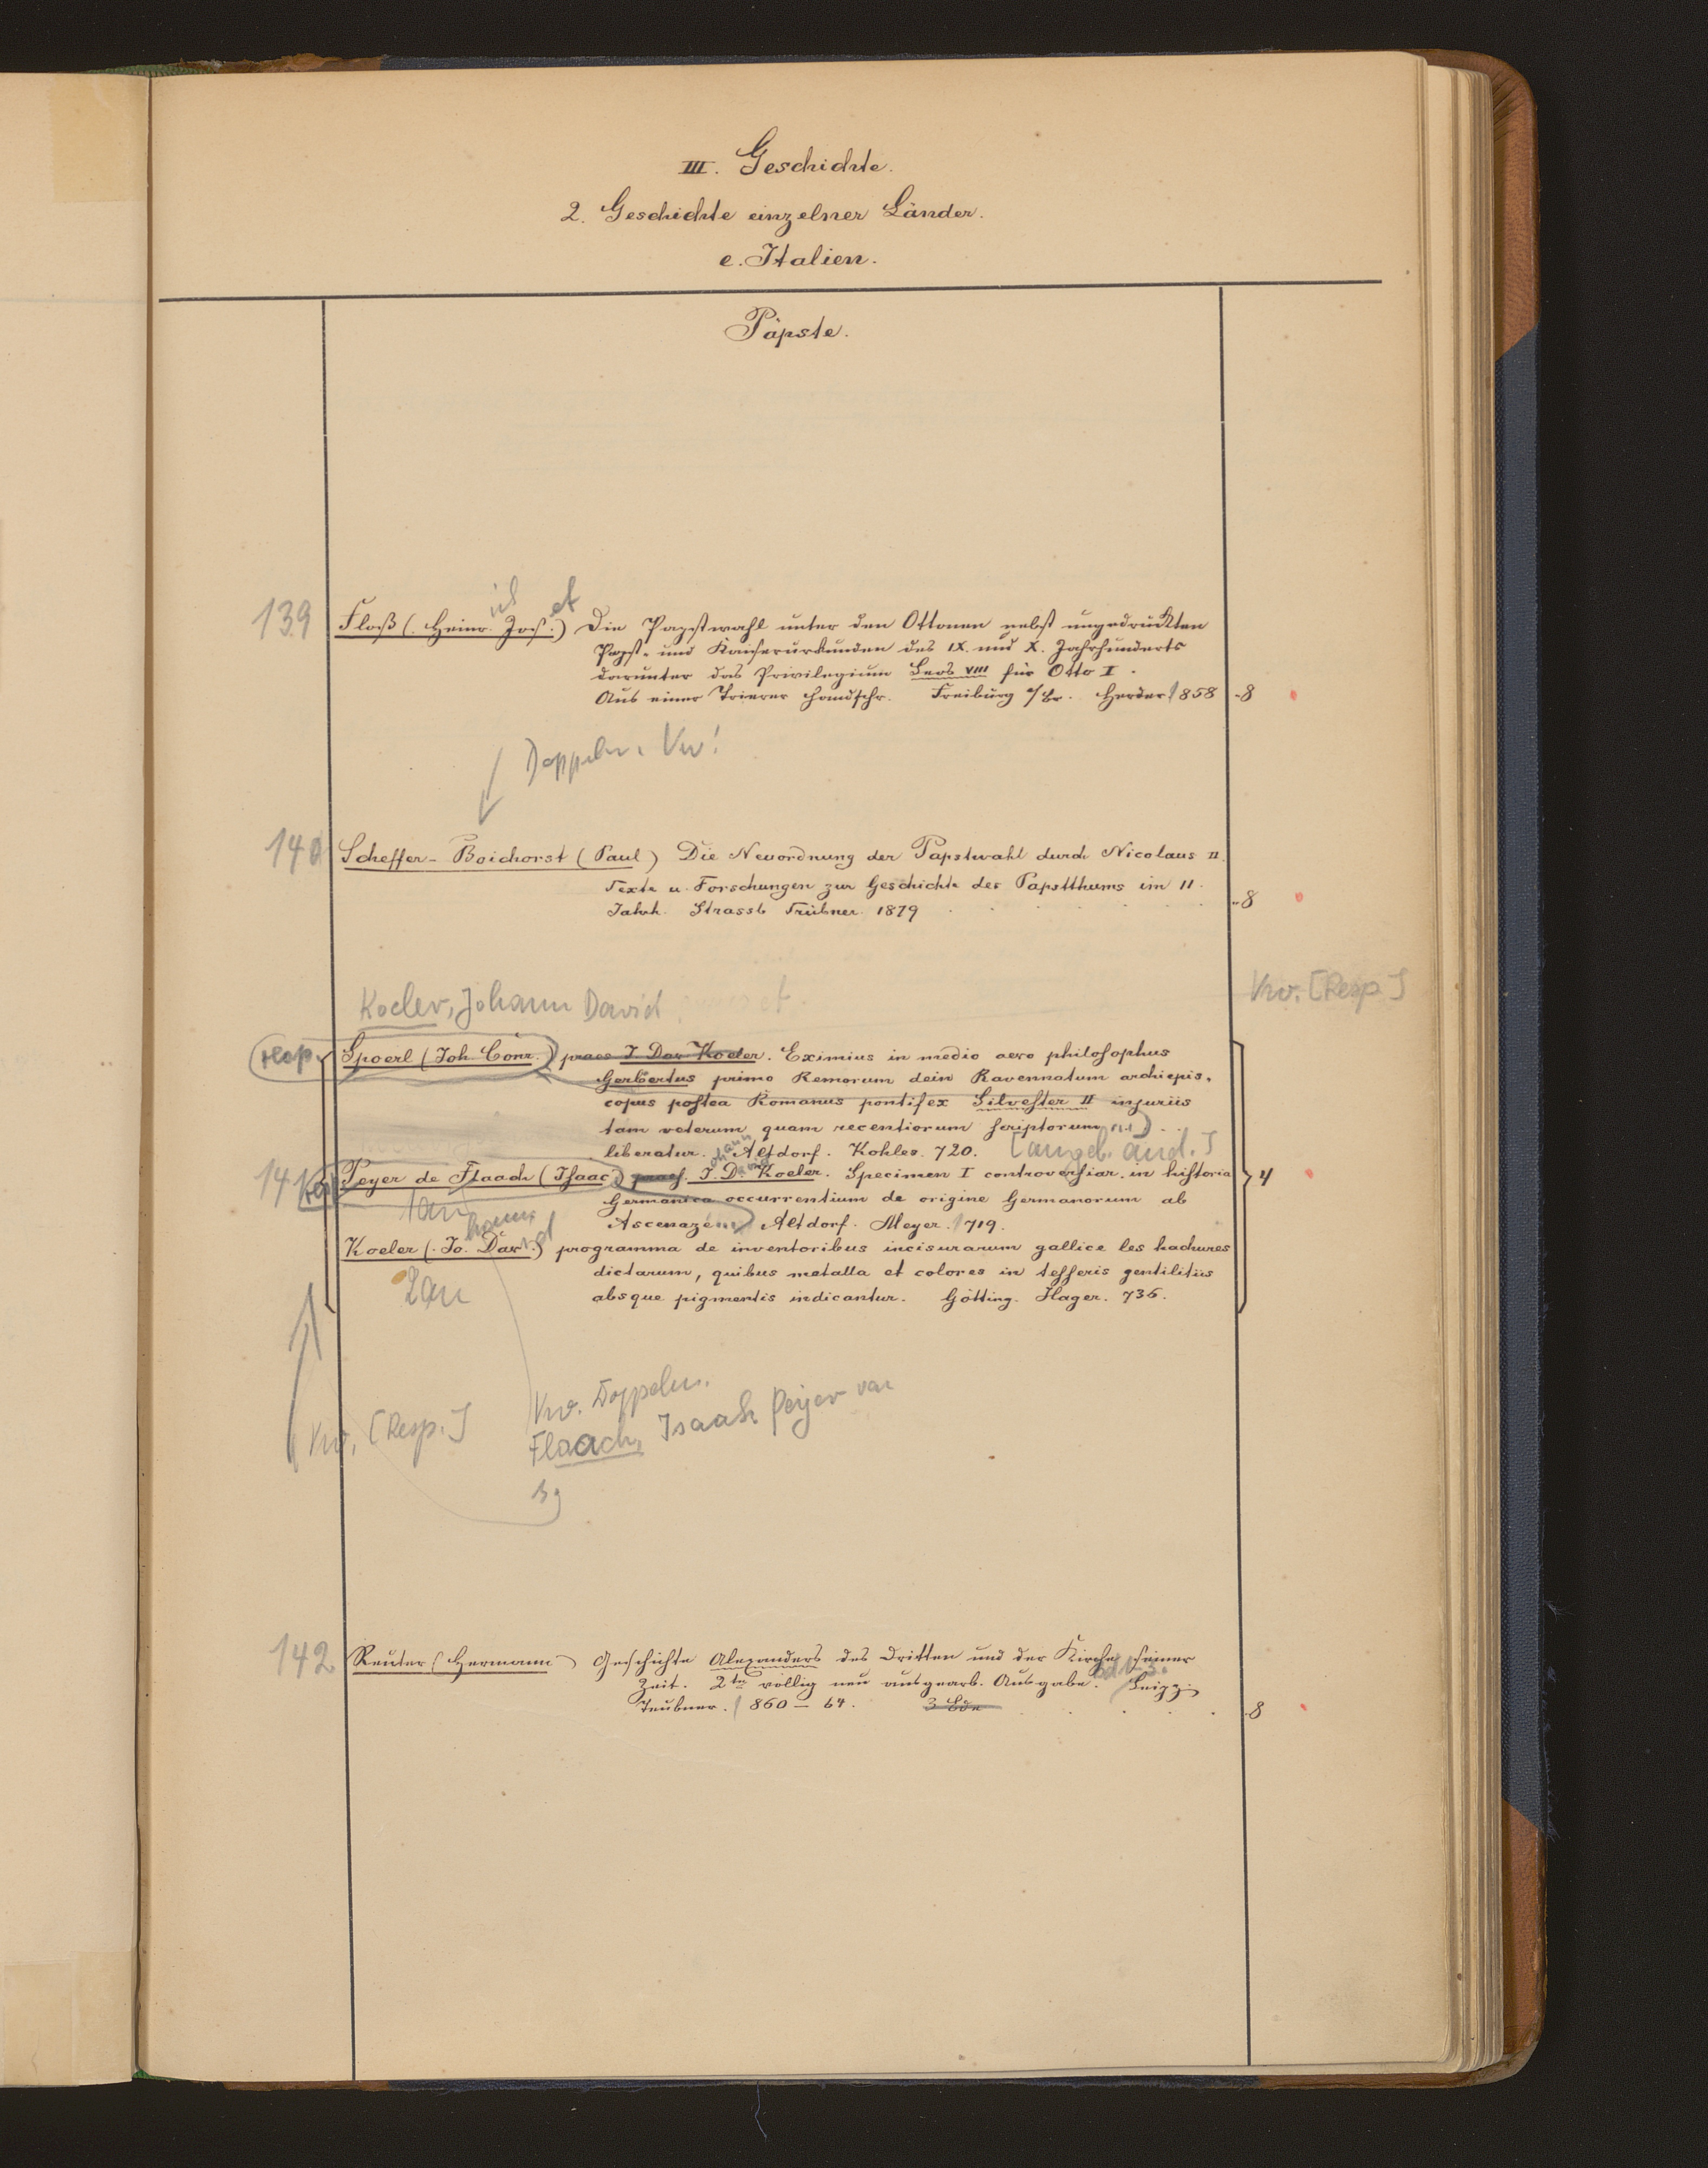 III. Geschichte.
2. Geschichte einzelner Länder.
e. Italien.
Päpste.
139 Floß (Heinr. Jos.) Die Papstwahl unter den Ottonen nebst ungedruckten
Papst- und Kaiserurkunden des IX. und X. Jahrhunderts
darunter das Privilegium Leos VIII für Otto I.
Aus einer Trierer Handschr. Freiburg i/Br. Herder 1858 8
Doppeln. Vw!
140 Scheffer-Boichorst (Paul) Die Neuordnung der Papstwahl durch Nicolaus II.
Texte u. Forschungen zur Geschichte des Papstthums im 11.
Jahrh. Strassb Trübner. 1879 8
Koeler, Johann David
Vw. [Resp]
resp. Spoerl (Joh. Conr.) praes J. Dav Koeler. Eximius in medio aevo philosophus
Gerbertus primo Remorum dein Ravennatum archiepis-
copus postea Romanus pontifex Silvester II injuriis
tam veterum quam recentiorum scriptorum
liberatur. Altdorf. Kohles. 720. [angeb. and.]
141 Peyer de Flaach (Isaac) praes. J. D. Koeler. Specimen I controversiar. in historia 4
Germanica occurrentium de origine Germanorum ab
Ascenaz Altdorf. Meyer. 1719.
Koeler (Jo. Dav.) programma de inventoribus incisurarum gallice les hachures
dictarum, quibus metalla et colores in tesseris gentilitiis
2 an
absque pigmentis indicantur. Götting. Hager. 736.
Vw. Doppeln.
Vw. [Resp.]
Flaach, Isaak Peyer von
142 Reuter (Hermann) Geschichte Alexanders des Dritten und der Kirche seiner
Zeit. 2te völlig neu ausgearb. Ausgabe. Bd 1-3. Leipz.
Teubner. 1860–64. 3 Bde 8